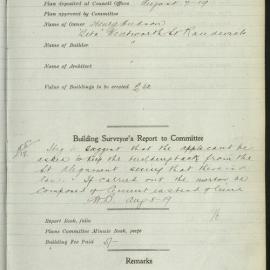 Plan deposited at Council Offices August 7-19
Plan approved by Committee
Name of Owner Henry Hudson
Wentworth St Randwick
Name of Builder "
Name of Architect
Value of Buildings to be erected £
Building Surveyor's Report to Committee
suggest that the applicant be
asked to keep the building back from the
St Alignment seeing that there is
If carried out the mortar be
composed of Cement instead of lime
Aug 8-19
Report Book, folio
Plans Committee Minute Book, page
Building Fee Paid 5/-
Remarks